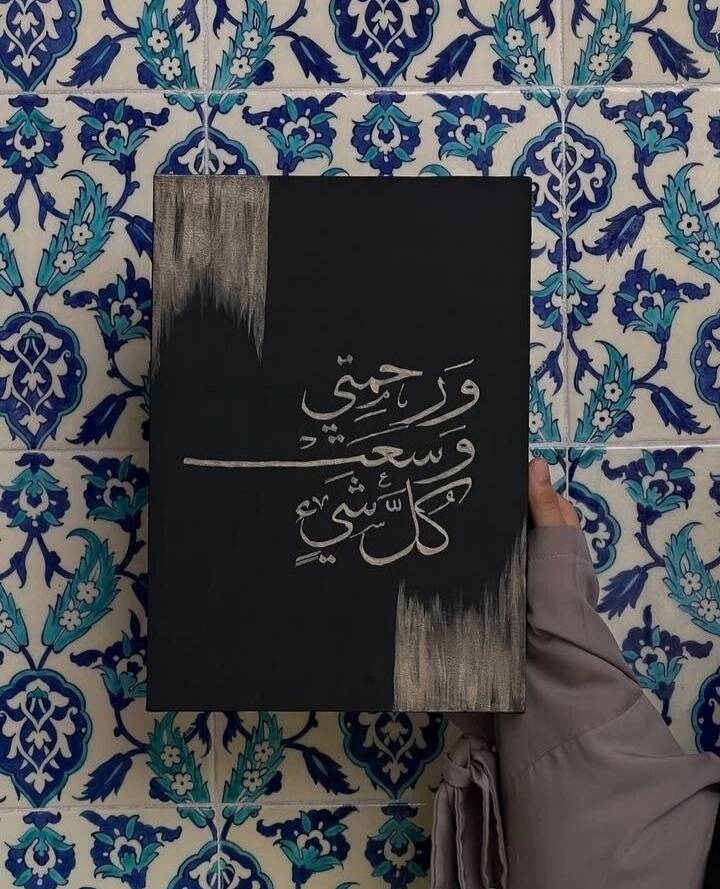 وَرَحمَتِي
وَسعَت
كُلَّ شَيءٍ